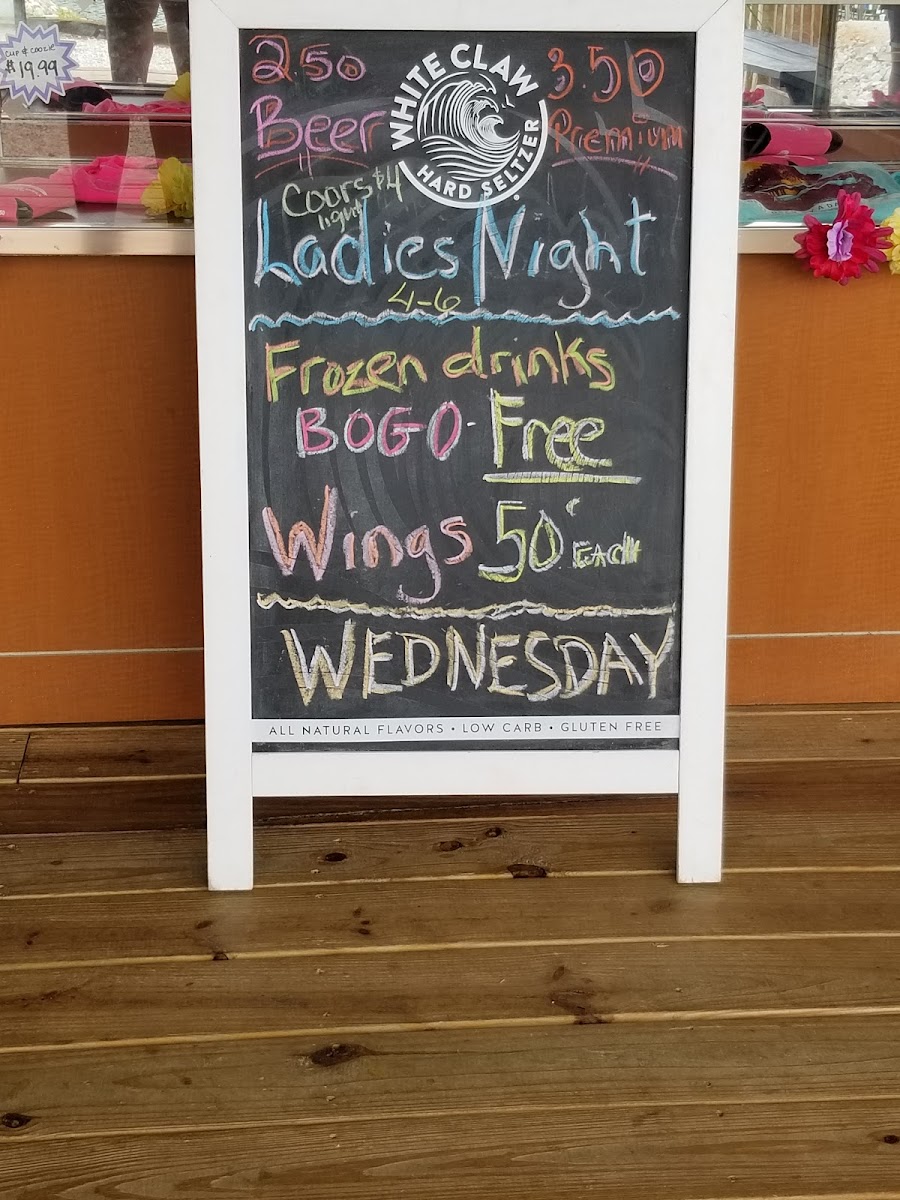 CUP & COOZIE
$19.99
2.50
Beer
WHITE CLAW
HARD SELTZER
3.50
Premium
Coors $4
light
Ladies Night
4-6
Frozen drinks
BOGO - Free
Wings 50¢ EACH
WEDNESDAY
ALL NATURAL FLAVORS • LOW CARB • GLUTEN FREE